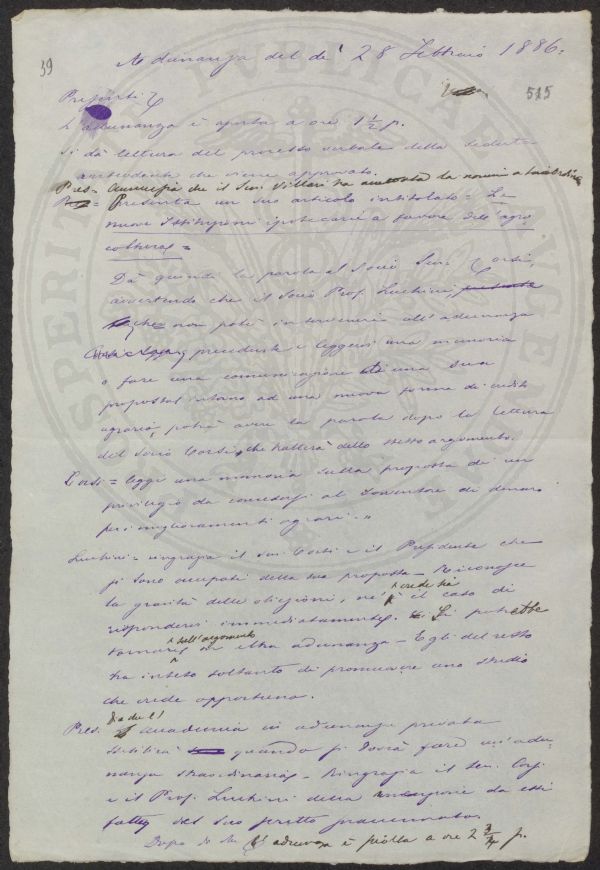 39
Adunanza del dì 28 Febbraio 1886.
515
Presenti
L'adunanza è aperta a ore 1 1/2 p.
Si dà lettura del processo verbale della seduta
antecedente che viene approvato.
Pres = Annunzia che il Sen. Villari ha accettato la nomina a
= Presenta un suo articolo intitolato = Le
nuove Istituzioni ipotecarie a favore dell'agri
coltura =
Dà quindi la parola al Socio Sen. Corsi,
avvertendo che il Socio Prof. Luchini
non potè intervenire all'adunanza
precedente e leggere una memoria
o fare una comunicazione di una sua
proposta intorno ad una nuova forma di credito
agrario, potrà avere la parola dopo la lettura
del Socio Corsi, che tratterà dello stesso argomento.
Corsi = legge una memoria sulla proposta di un
privilegio da concedersi al Sovventore di denari
per i miglioramenti agrari. „
Luchini = ringrazia il Sen. Corsi e il Presidente che
si sono occupati della sua proposta - Riconosce
la gravità delle obiezioni, nè crede sia il caso di
rispondere immediatamente. Si potrebbe
tornare sull'argomento in altra adunanza - Egli del resto
ha inteso soltanto di promuovere uno studio
che crede opportuno.
Pres. Dice che l'Accademia in adunanza privata
stabilirà quando si dovrà fare un'adu-
nanza straordinaria - Ringrazia il Sen. Corsi
e il Prof. Luchini della menzione da essi
fatta del suo scritto
Dopo di che l'adunanza è sciolta a ore 2 3/4 p.